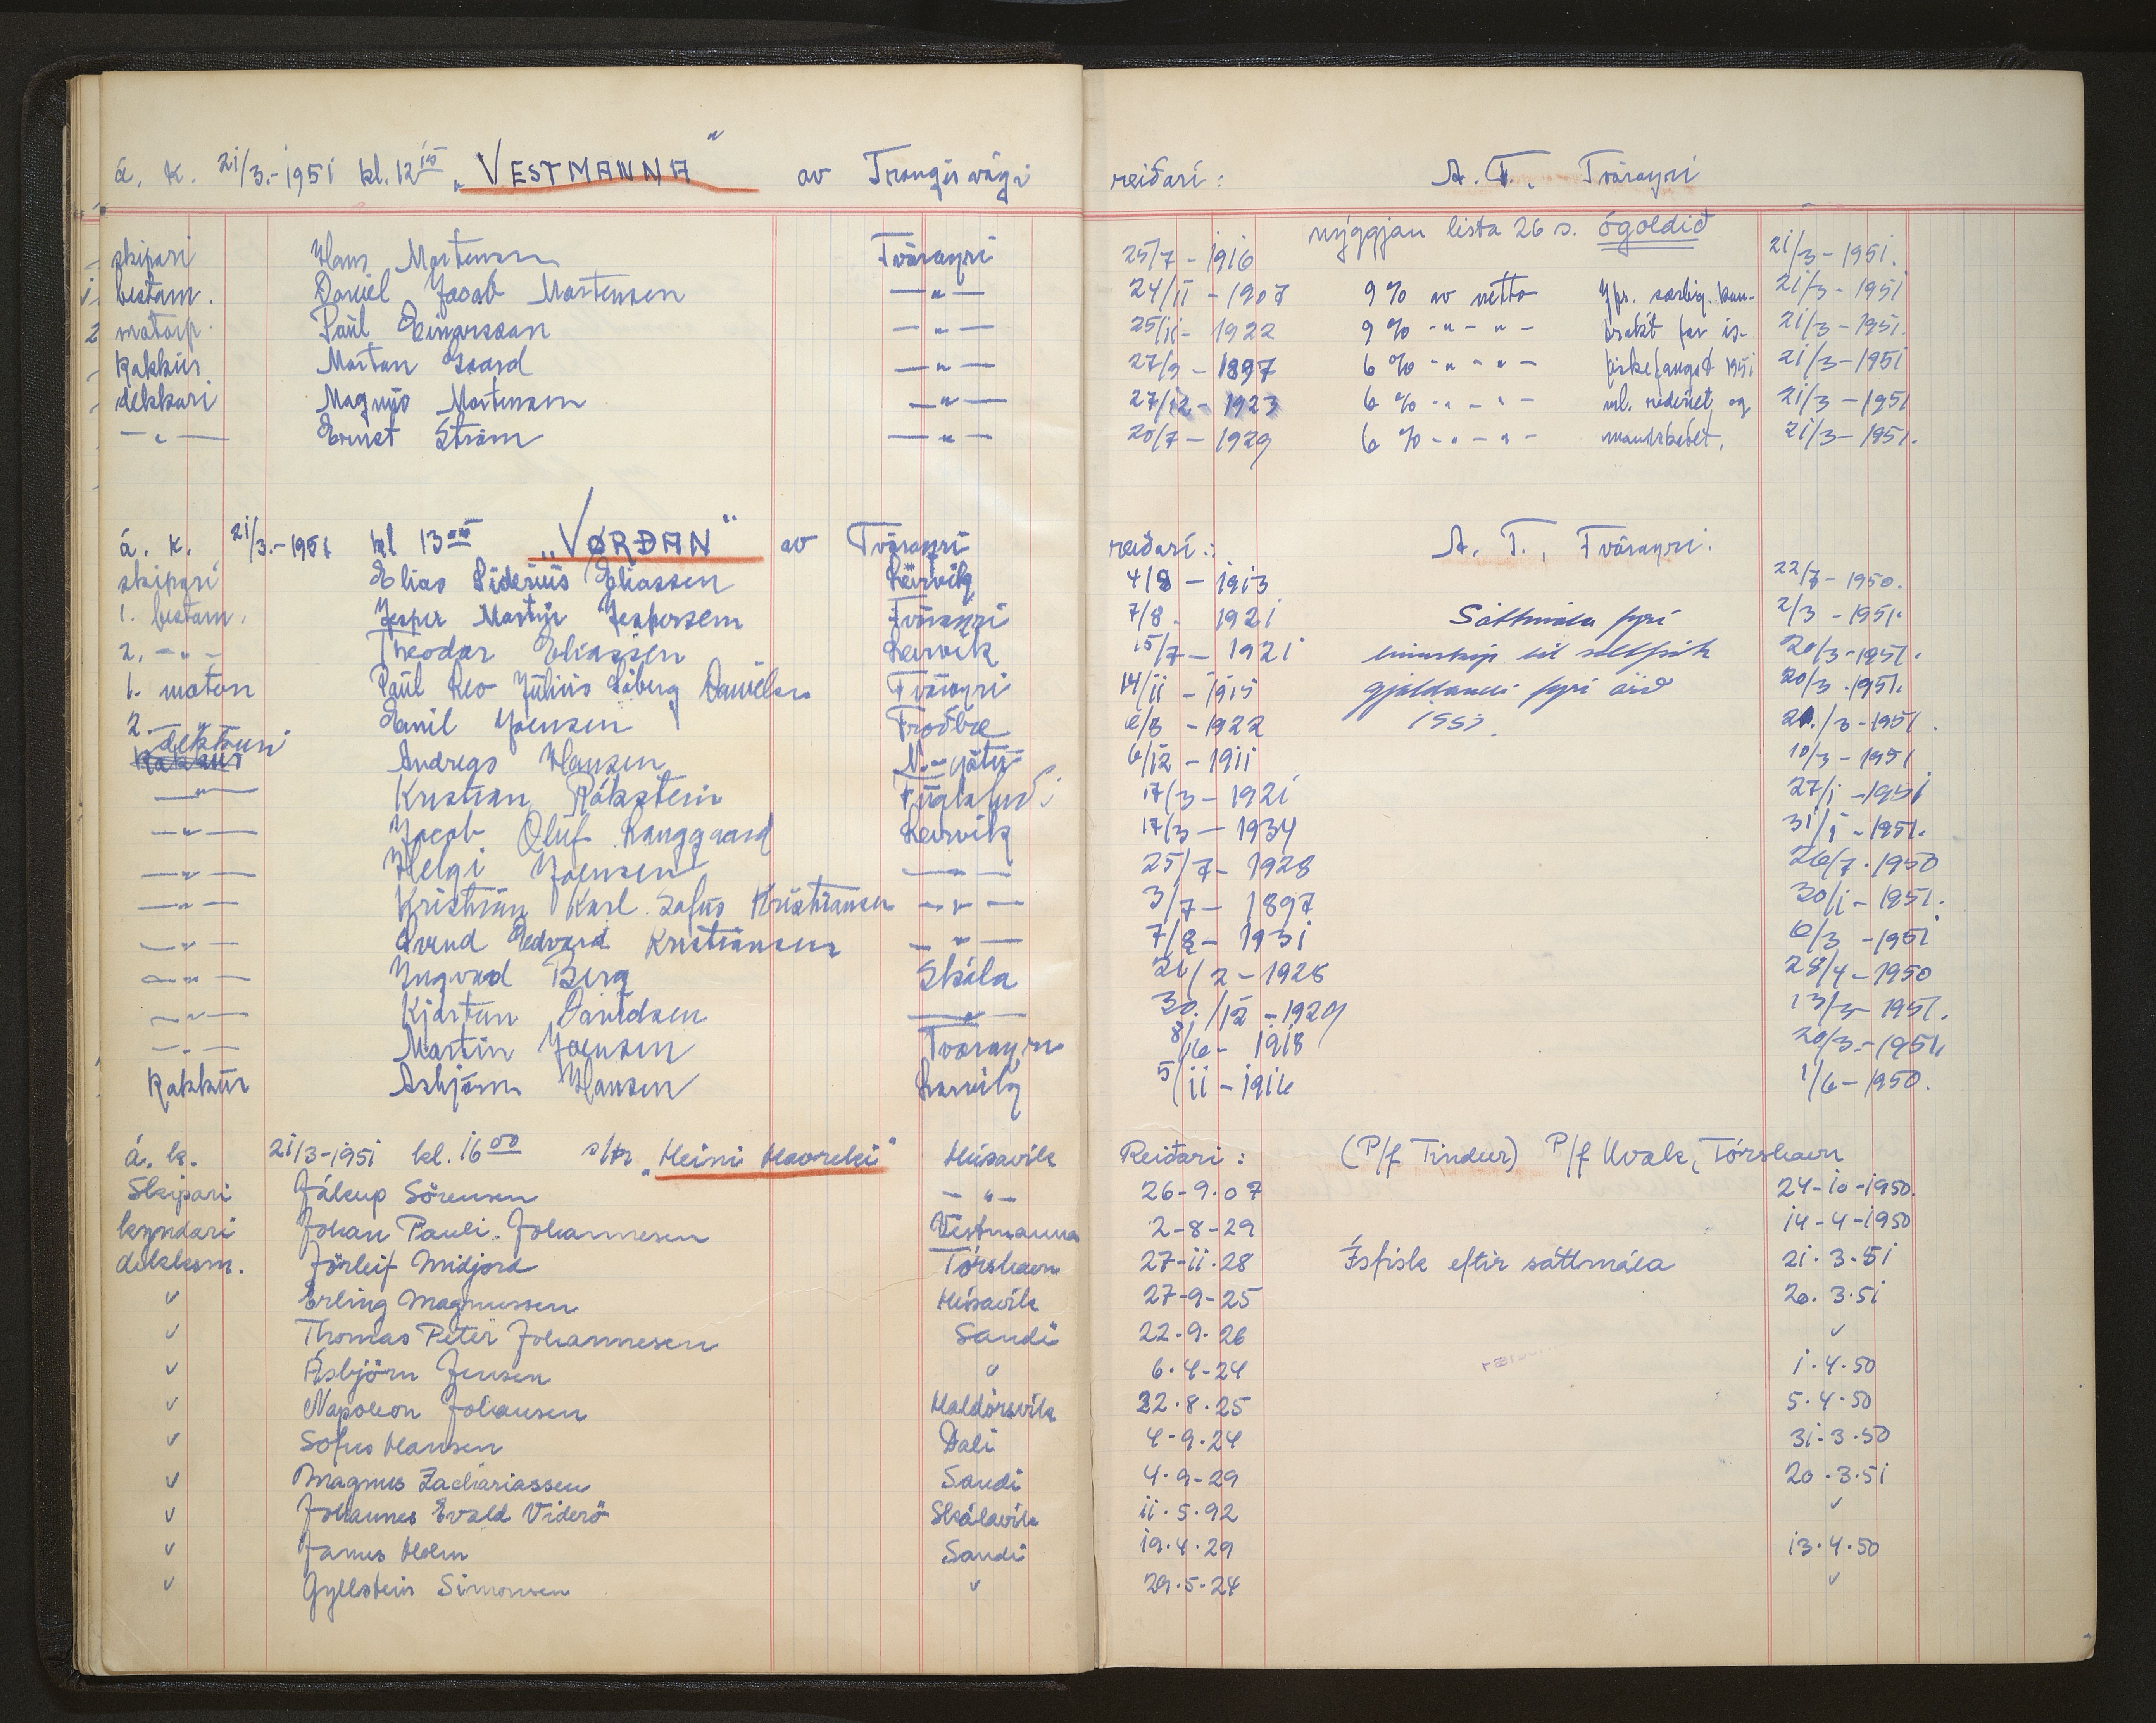 á. k. 21/3.-1951 kl. 12 15 „VESTMANNA" av Trongisvági reiðari: A. T. Tvöroyri
nýggjan lista 26 s. ógoldið
skipari Hans Mortensen Tvöroyri 25/7 - 1916 21/3 - 1951.
1. bestam. Daniel Jacob Mortensen —"— 24/11 - 1907 9 % av netto Jfr. særlig kon- 21/3 - 1951
2 motorp. Paul Einarsson —"— 25/11 - 1922 9 % -"-"- trakt for is- 21/3 - 1951.
kokkur Morten Gaard —"— 27/9 - 1897 6 % -"-"- fiskefangst 1951 21/3 - 1951
dekkari Magnus Mortensen —"— 27/12 - 1923 6 % -"-"- ml. rederiet og 21/3 - 1951
—"— Ernst Ström —"— 20/7 - 1929 6 % -"-"- mandskabet. 21/3 - 1951.
á. k. 21/3.-1951 kl 13 00 „VØRÐAN" av Tvöroyri reiðari: A. T., Tvöroyri.
skipari Elias Siderius Eliassen Leirvik 4/8 - 1913 22/7 - 1950.
1. bestam. Jesper Martin Jespersen Tvöroyri 7/8 - 1921 Sáttmála fyri 2/3 - 1951.
2. -"- Theodor Eliassen Leirvik 15/7 - 1921 línuskip til saltfisk 20/3 - 1951.
1. moton Paul Leo Julius Siberg Danielsen Tvöroyri 14/11 - 1915 gjaldandi fyri árið 20/3 - 1951.
2. Emil Joensen Froðbæ 6/3 - 1922 1951. 21./3 - 1951.
dekkari kokkur Andreas Hansen N.-gøtu 6/12 - 1911 10/3 - 1951
—"— Kristian Rókstein Fuglafirði 17/3 - 1921 27/1 - 1951
—"— Jacob Oluf Langgaard Leirvik 17/3 - 1934 31/1 - 1951.
—"— Helgi Joensen —"— 25/7 - 1928 26/7 - 1950
—"— Kristian Karl Sofus Kristiansen —"— 3/7 - 1897 30/1 - 1951.
—"— Svend Edvard Kristiansen —"— 7/8 - 1931 6/3 - 1951
—"— Yngvard Berg Skála 21/2 - 1928 28/4 - 1950
—"— Kjartan Davidsen —"— 30./12 - 1929 13/3 - 1951.
—"— Martin Joensen Tvöroyri 8/6 - 1918 20/3 - 1951.
Kokkur Asbjørn Hansen Leirvik 5/11 - 1916 1/6 - 1950.
á. k. 21/3-1951 kl. 16 00 s/tr „Heini Havreki" Húsavik Reiðari: (P/f Tindur) P/f Hvalv, Tórshavn
Skipari Jákup Sörensen -"- 26-9.07 24-10-1950.
kyndari Johan Pauli Johannesen Vestmanna 2-8-29 14-4-1950
dekksm. Jörleif Midjord Tórshavn 27-11-28 Ísfisk eftir sáttmála 21.3.51
" Erling Magnussen Húsavik 27-9-25 20.3.51
" Thomas Peter Johannesen Sandi 22-9-26 "
" Ásbjörn Jensen " 6.4-24 1.4.50
" Napoleon Johansen Haldórsvik 22.8.25 5.4.50
" Sofus Hansen Dali 4-9.24 31-3.50
" Magnus Zachariassen Sandi 4.9-29 20.3.51
" Johannes Evald Viderö Skálavik 11.5.92 "
" Janus Holm Sandi 19.4.29 13.4.50
" Gyllstein Simonsen " 29.5-24 "